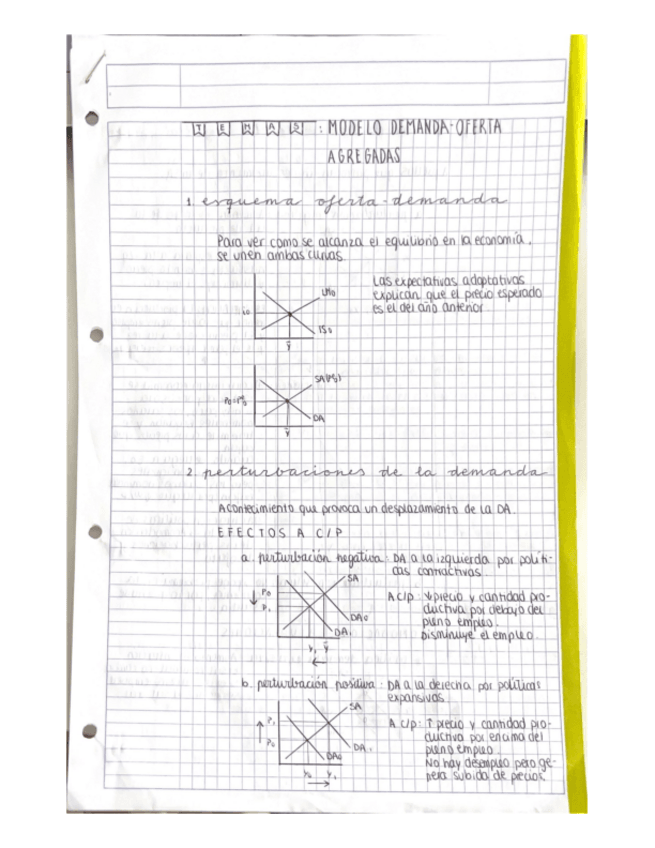 TEMA 5: MODELO DEMANDA-OFERTA
AGREGADAS
1. esquema oferta-demanda
Para ver como se alcanza el equilibrio en la economía,
se unen ambas curvas
Las expectativas adaptativas
explican que el precio esperado
es el del año anterior
LM0
i0
IS0
Ȳ
SA
DA
Ȳ
2. perturbaciones de la demanda
Acontecimiento que provoca un desplazamiento de la DA.
EFECTOS A C/P
a. perturbación negativa: DA a la izquierda por políti-
cas contractivas
SA
P0
P1
DA0
DA1
Y1 Ȳ
A c/p: ↓ precio y cantidad pro-
ductiva por debajo del
pleno empleo.
Disminuye el empleo.
b. perturbación positiva: DA a la derecha por políticas
expansivas
SA
P1
P0
DA1
DA0
Y0 Y1
A c/p: ↑ precio y cantidad pro-
ductiva por encima del
pleno empleo.
No hay desempleo pero ge-
nera subida de precios.